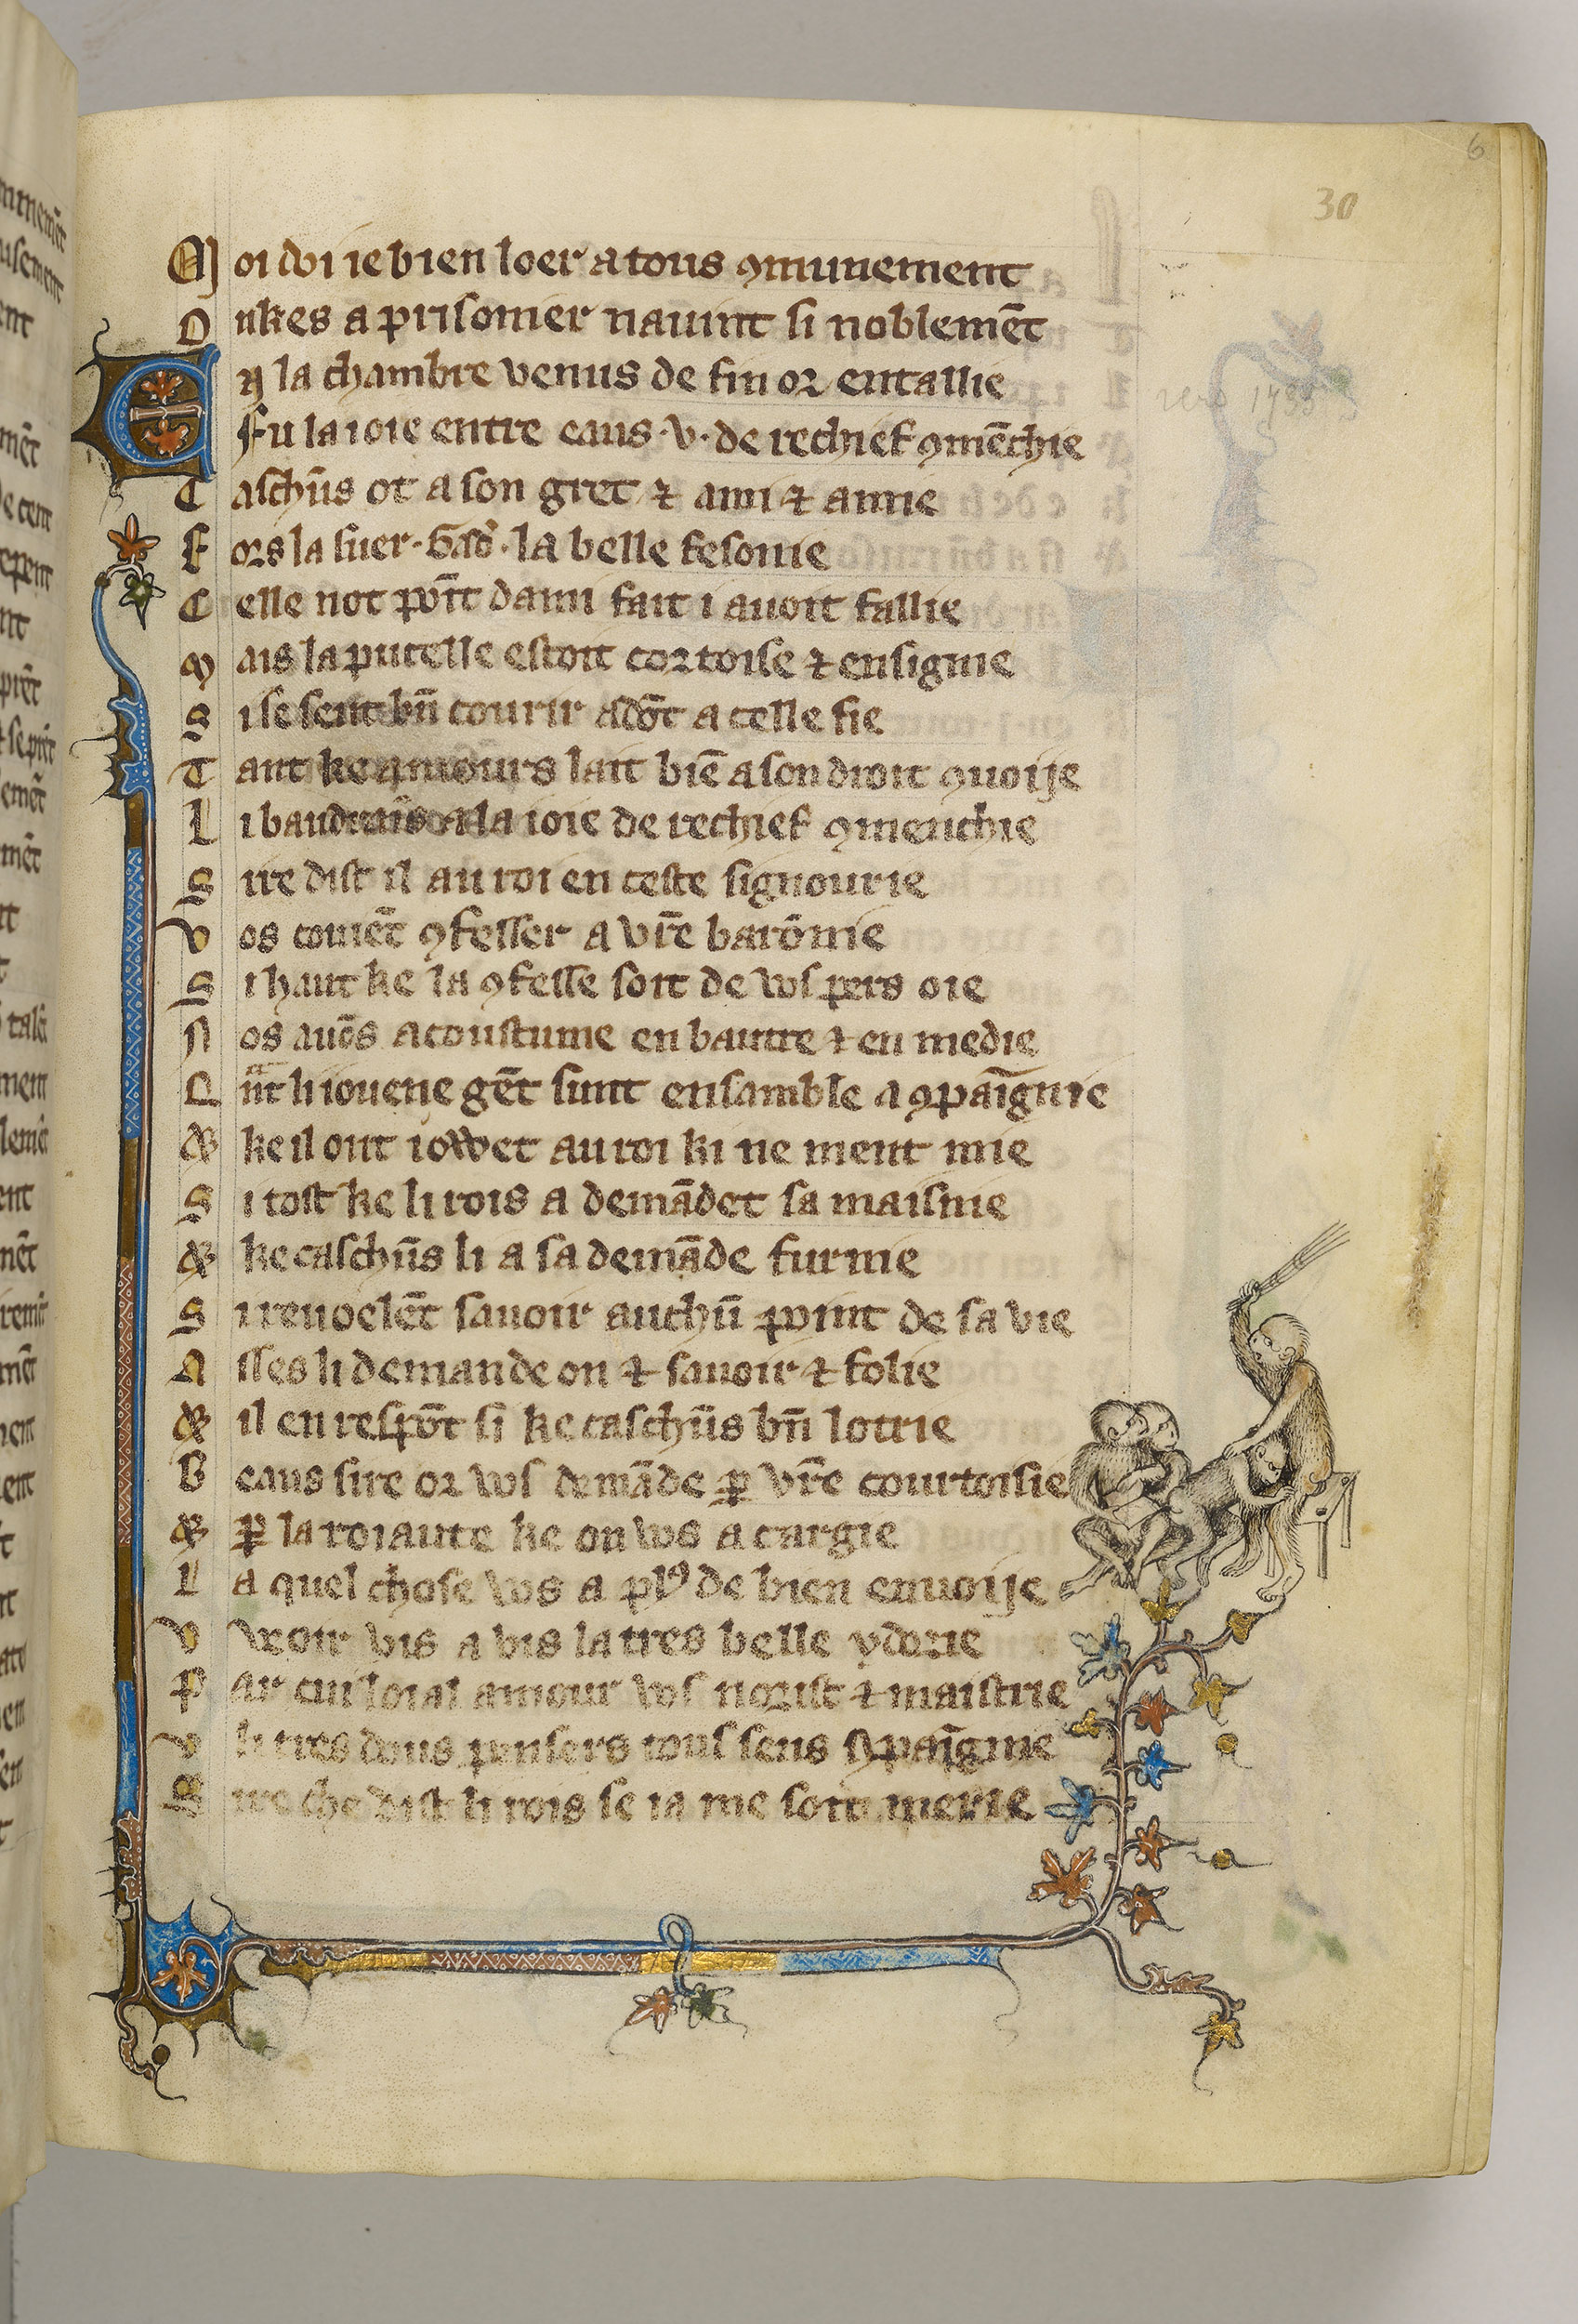 6
30
M oi doi ie bien loer a tous ꝯmunement
O nkes a prisonier nauint si noblemēt
E n la chambre venus de fin or entallie
Fu la ioie entre eaus .v. de rechief ꝯmēchie
C aschūs ot a son gret ⁊ ami ⁊ amie
F ors la suer . la belle fesonie
C elle not point dami fait i auoit fallie
M ais la pucelle estoit cortoise ⁊ ensignie
S i se sent bn̄ courir adōt a celle fie
T ant ke amours lait biē a son droit ꝯuoije
L i baudrais a la ioie de rechief ꝯmenchie
S ire dist il au roi en ceste signourie
V os couiēt ꝯfesser a vr̄e barōnie
S i haut ke la ꝯfesse soit de vos pers oie
N os auōs acoustume en bautre ⁊ en medie
Q nt li iouene gēt sunt ensamble a ꝯpaīgnie
& ke il ont iowet au roi ki ne ment mie
S i tost ke li rois a demādet sa maisnie
& ke caschūs li a sa demāde furnie
S i reuoelēt sauoir auchū point de sa vie
A sses li demande on ⁊ sauoir ⁊ folie
& il en respōt si ke caschūs bn̄ lotrie
B eaus sire or vos demāde ꝑ vr̄e courtoisie
& ꝑ la roiaute ke on vos a cargie
L a quel chose vos a plꝰ de bien enuoije
V veoir vis a vis la tres belle ydorie
P ar cui loial amour vos norist ⁊ maistrie
V li tres dous pensers sens ꝯpaīgnie
S ire che dist li rois se ia me soit merie